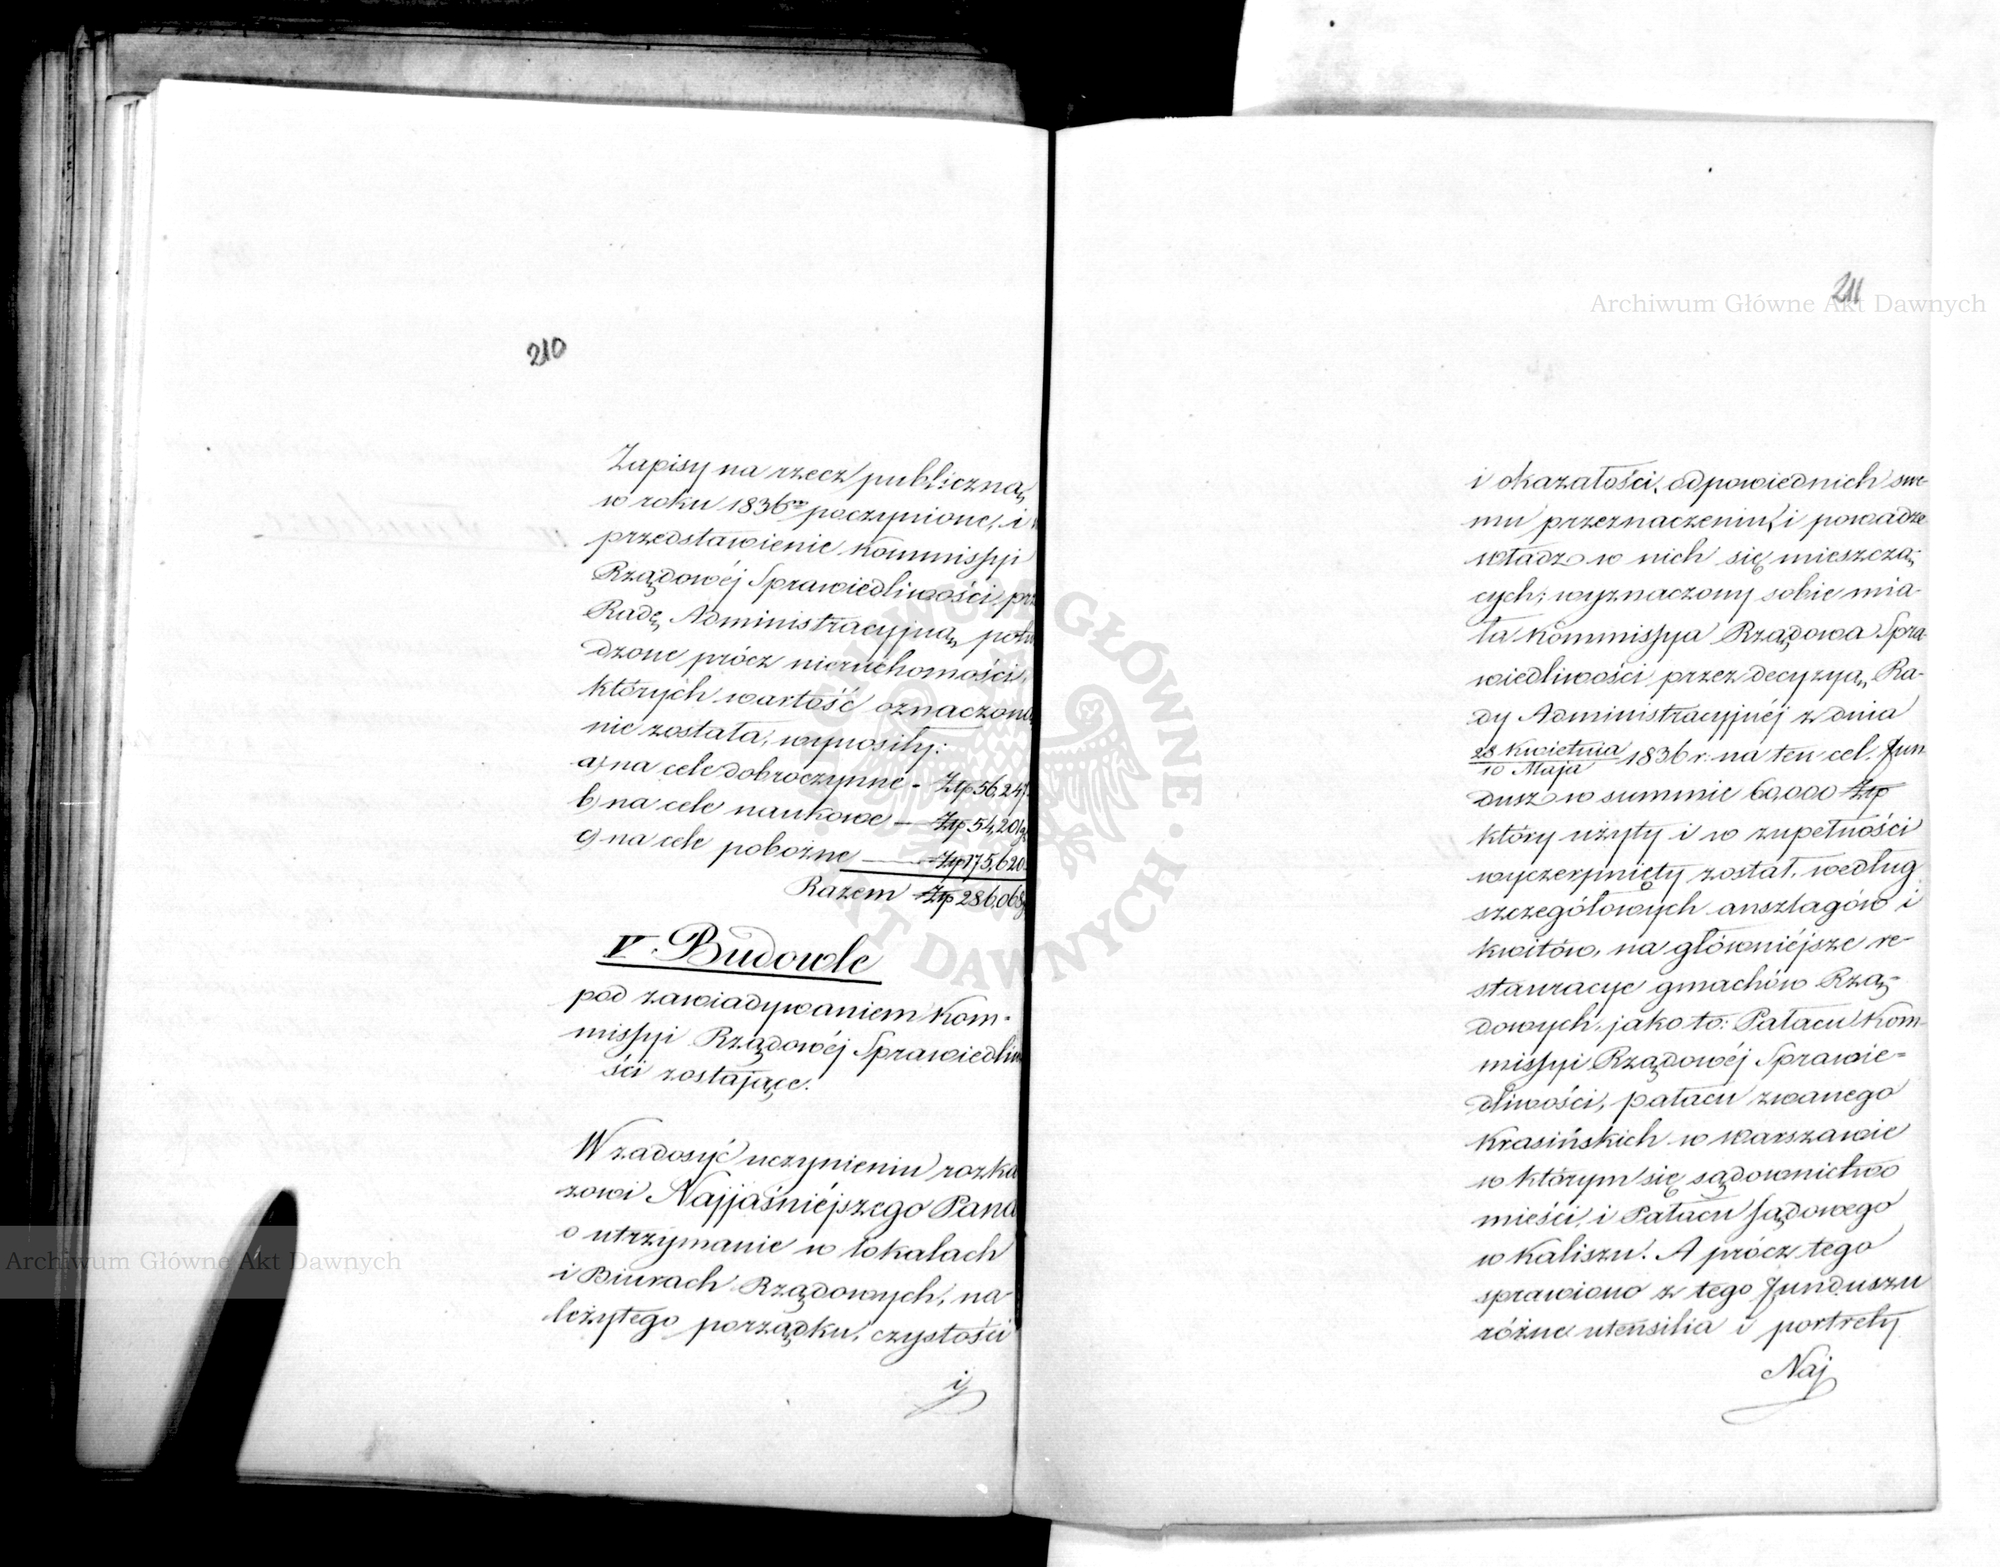 210
Zapisy na rzecz publiczną,
w roku 1836ym poczynione, i
przedstawienie Kommissyi
Rządowéj Sprawiedliwości, prz
Radę Administracyjną, potw
dzone prócz nieruchomości,
których wartość oznaczoną
nie została, wynosiły:
a) na cele dobroczynne - Złp 56,247.
b) na cele naukowe — Złp 54,201
c) na cele pobożne — Złp 175,620.
Razem Złp 286,068
V. Budowle
pod zawiadywaniem Kom-
missyi Rządowéj Sprawiedliw
ści zostające.
W zadosyć uczynieniu rozka
zowi Najjaśniéjszego Pana
o utrzymanie w lokalach
i Biurach Rządowych, na
leżytego porządku, czystości
i
211
i okazałości, odpowiednich swe-
mu przeznaczeniu, i powadze
władz w nich się mieszczą-
cych; wyznaczony sobie mia-
ła Kommissya Rządowa Spra-
wiedliwości przez decyzyą, Ra-
dy Administracyjnéj z dnia
28 Kwietnia/10 Maja 1836 r. na ten cel, Fun
dusz w summie 60,000 Złp
który użyty i w zupełności
wyczerpnięty został, według
szczegółowych anszlagów i
kwitów, na główniéjsze re-
stauracye gmachów Rzą-
dowych, jako to: Pałacu Kom-
missyi Rządowéj Sprawie-
dliwości, pałacu zwanego
Krasińskich w Warszawie
w którym się sądownictwo
mieści, i Pałacu Sądowego
w Kaliszu. A prócz tego
sprawiono z tego Funduszu
różne utensilia i portrety
Naj
Archiwum Główne Akt Dawnych
Archiwum Główne Akt Dawnych
ARCHIWUM GŁÓWNE AKT DAWNYCH